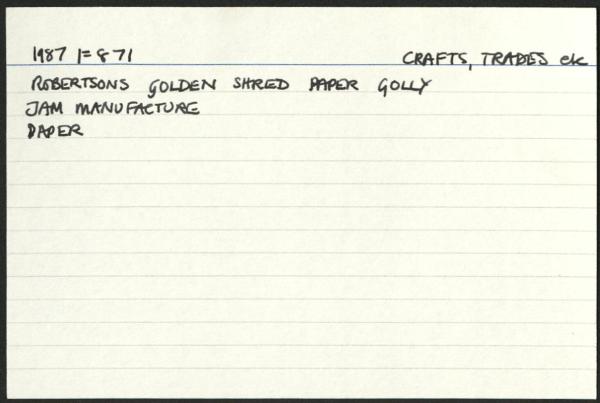 1987 1=871
CRAFTS, TRADES etc
ROBERTSONS GOLDEN SHRED PAPER GOLLY
JAM MANUFACTURE
PAPER